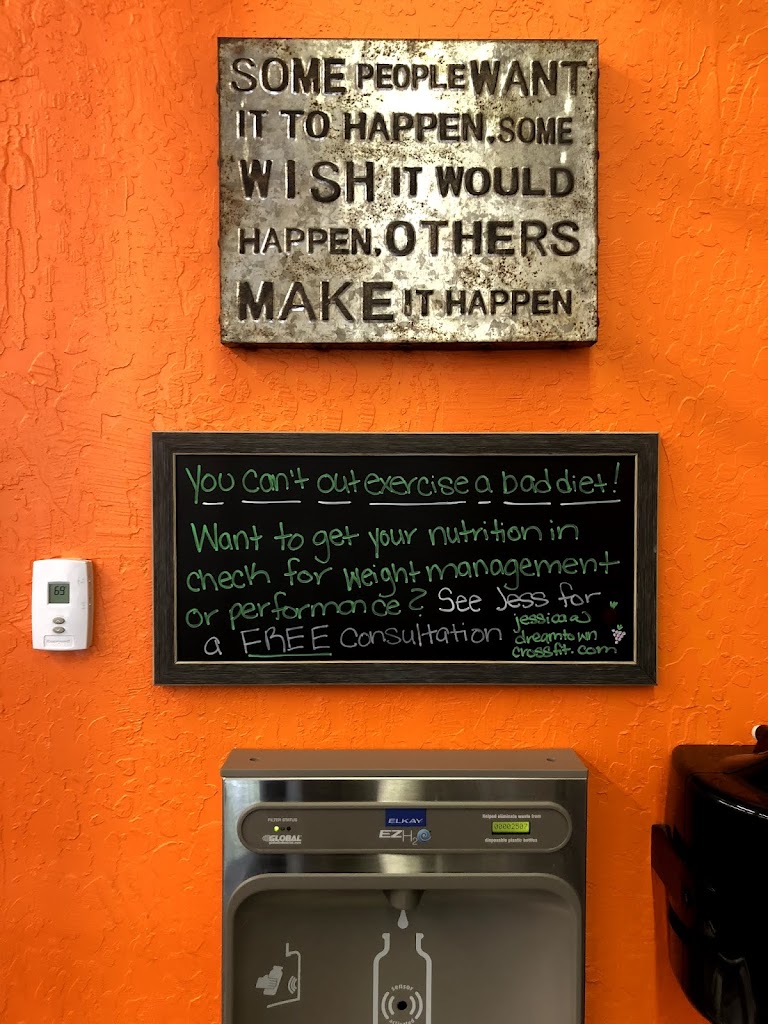 SOME PEOPLE WANT
IT TO HAPPEN. SOME
WISH IT WOULD
HAPPEN, OTHERS
MAKE IT HAPPEN
You can't out exercise a bad diet!
Want to get your nutrition in
check for weight management
or performance? See Jess for
a FREE Consultation
jessica@
dreamtown
crossfit.com
69
FILTER STATUS
GLOBAL
ELKAY
EZH2O
Helped eliminate waste from
00002507
disposable plastic bottles
sensor
activated